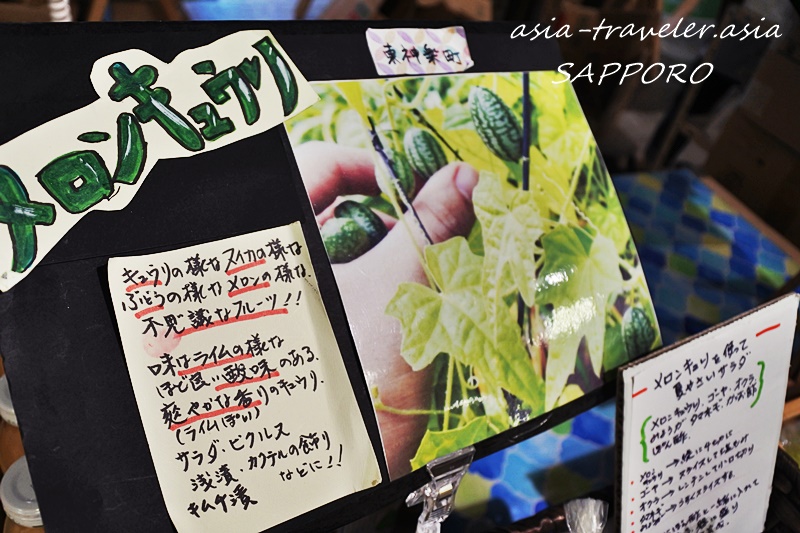 asia-traveler.asia
SAPPORO
東神楽町
メロンキュウリ
キュウリの様な スイカの様な
ぶどうの様な メロンの様な。
不思議なフルーツ!!
味はライムの様な
ほど良い酸味のある、
爽やかな香りのキュウリ。
(ライムぽい)
サラダ・ピクルス
浅漬・カクテルの飾り
キムチ漬 などに!!
メロンキュウリを使って
夏やさいサラダ
メロンキュウリ、ゴーヤ、オクラ
みょうが タマネギ、かつお節
ゴーヤ→スライスして
オクラ→